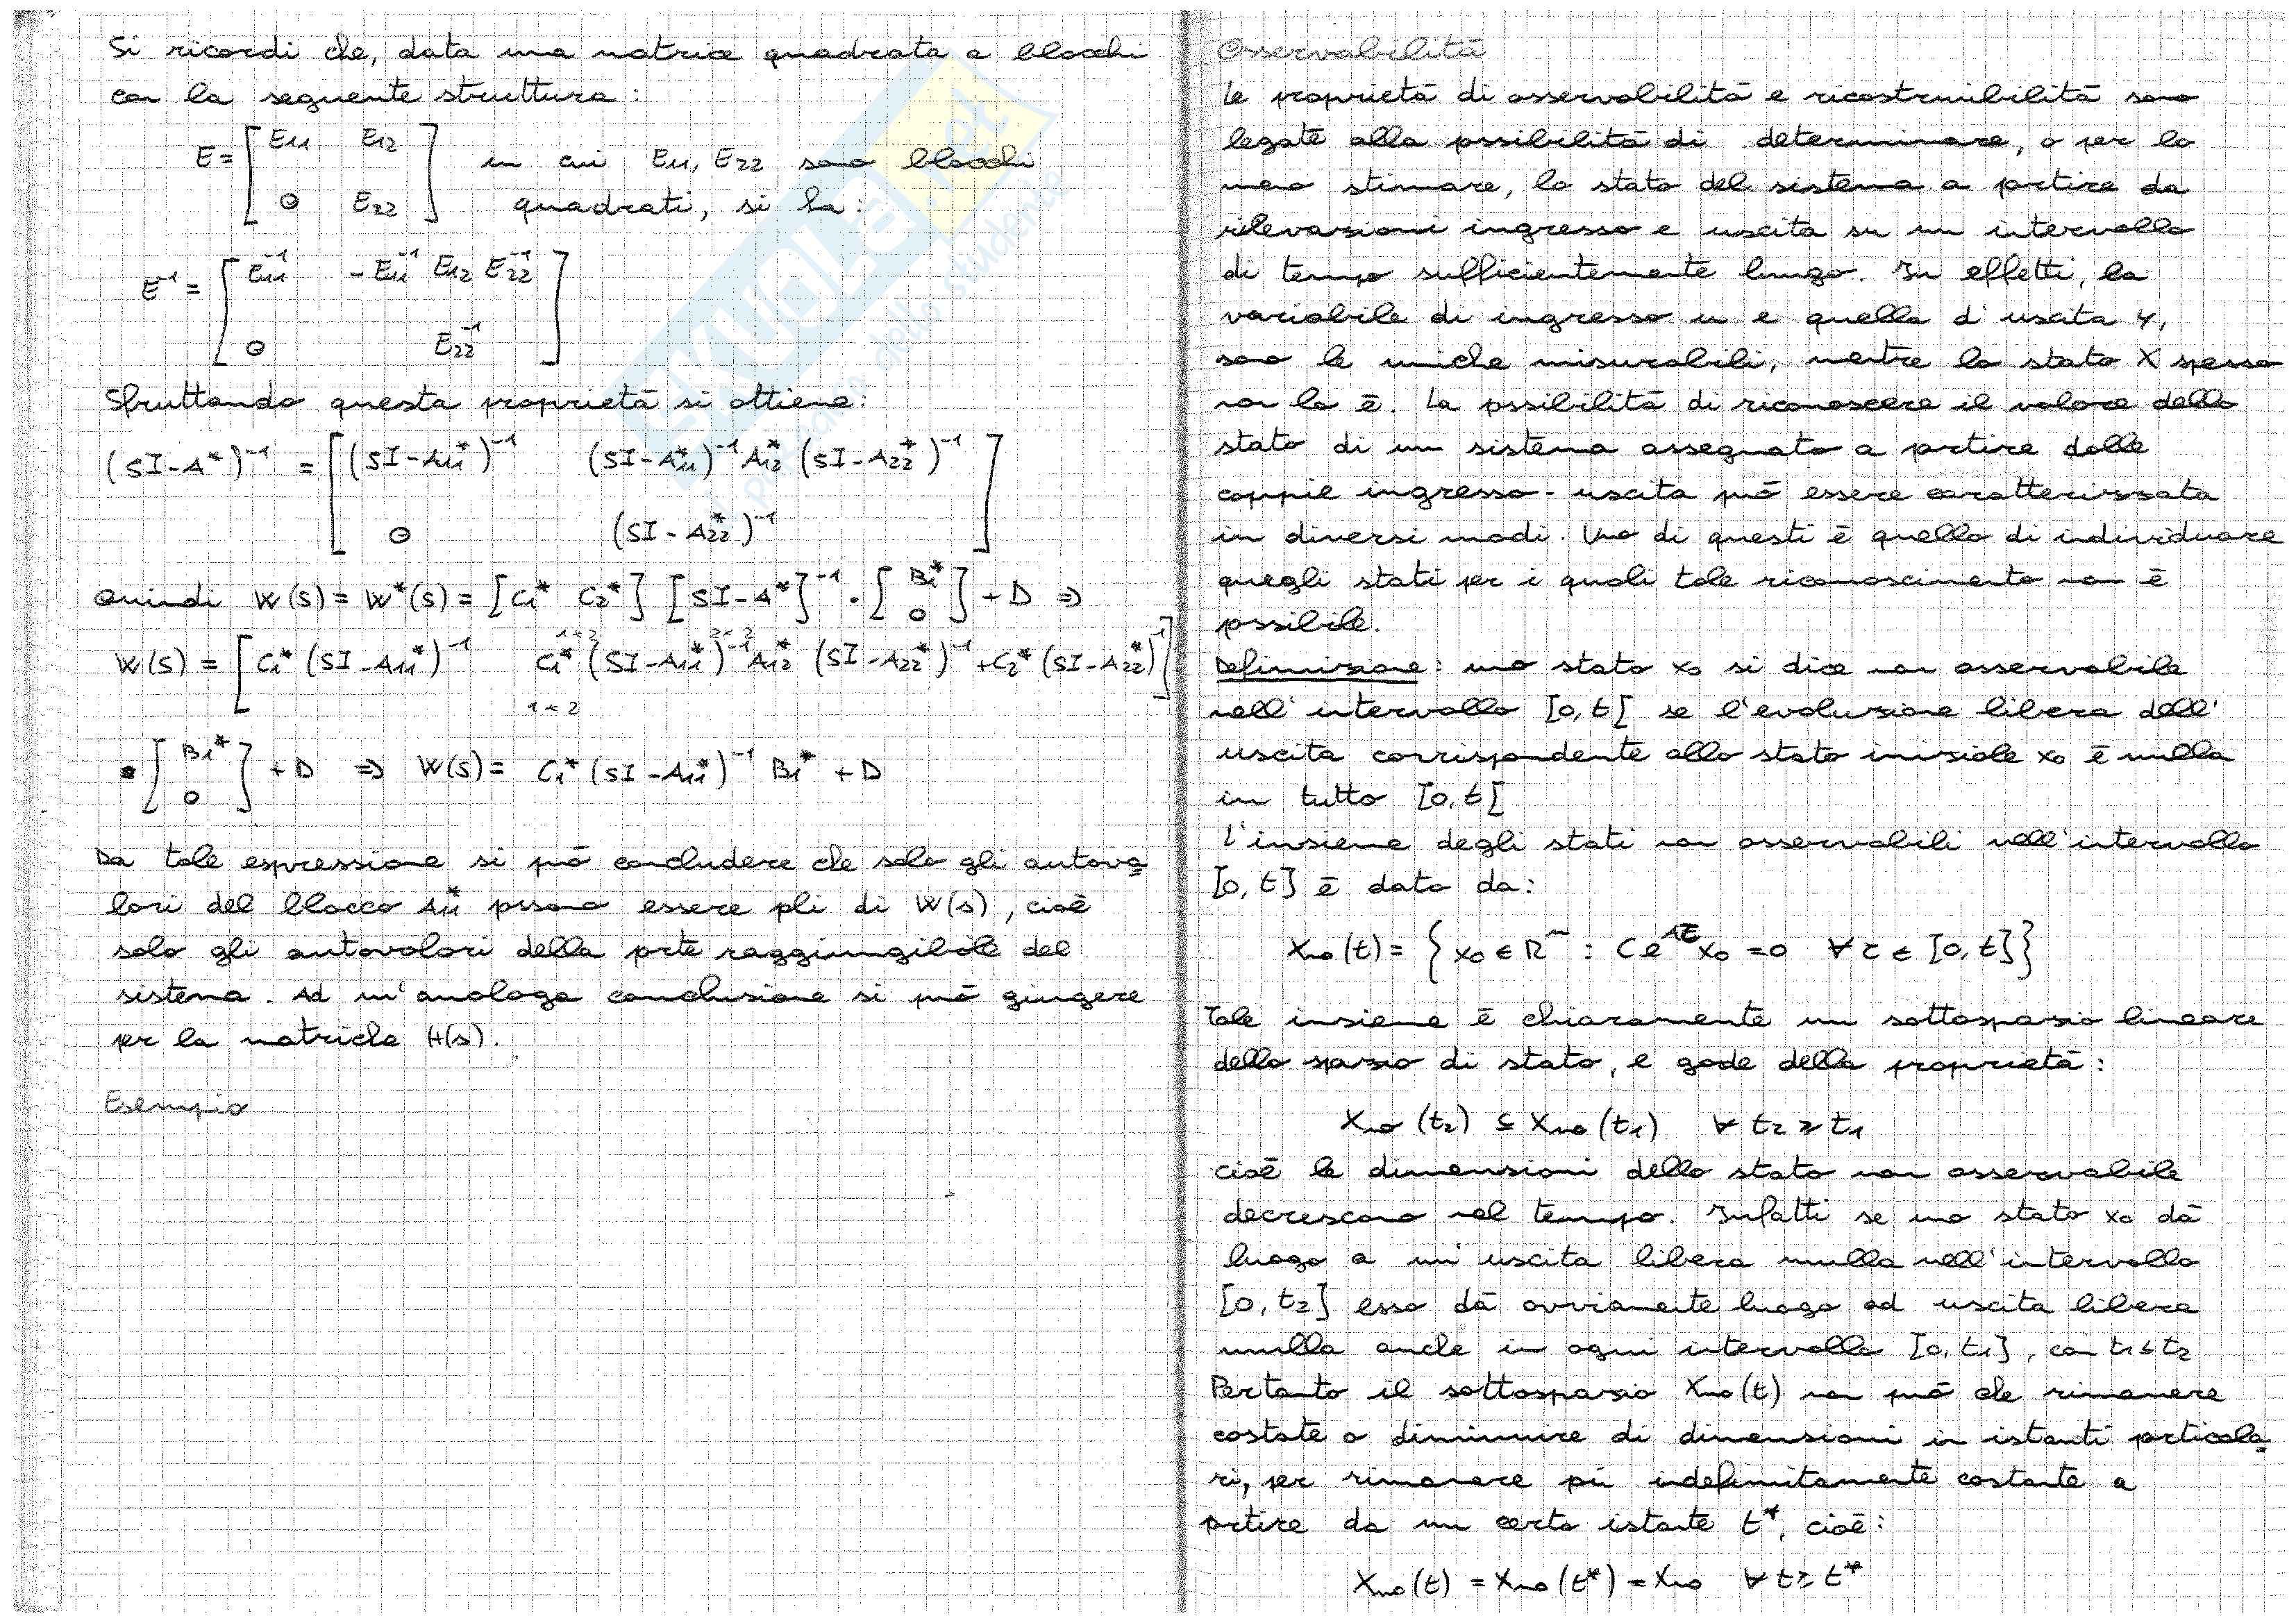 Si ricordi che, data una matrice quadrata a blocchi
con la seguente struttura:
E = [ E11 E12
0 E22 ] in cui E11, E22 sono blocchi
quadrati, si ha:
E⁻¹ = [ E11⁻¹ -E11⁻¹ E12 E22⁻¹
0 E22⁻¹ ]
Sfruttando questa proprietà si ottiene:
(SI-A*)⁻¹ = [ (SI-A11*)⁻¹ (SI-A11*)⁻¹ A12* (SI-A22*)⁻¹
0 (SI-A22*)⁻¹ ]
Quindi W(s) = W*(s) = [C1* C2*] [SI-A*]⁻¹ · [ B1*
0 ] + D ⇒
W(s) = [ C1* (SI-A11*)⁻¹ C1* (SI-A11*)⁻¹ A12* (SI-A22*)⁻¹ + C2* (SI-A22*)⁻¹ ]
1×2
• [ B1*
0 ] + D ⇒ W(s) = C1* (SI-A11*)⁻¹ B1* + D
Da tale espressione si può concludere che solo gli autova=
lori del blocco A11* pssono essere pli di W(s), cioè
solo gli autovalori della prte raggiungibile del
sistema. Ad un'analoga conclusione si può giungere
per la matricle H(s).
Esempio
Osservabilità
Le proprietà di osservabilità e ricostruibilità sono
legate alla pssibilità di determinare, o per lo
meno stimare, lo stato del sistema a partire da
rilevazioni ingresso e uscita su un intervallo
di tempo sufficientemente lungo. In effetti, la
variabile di ingresso u e quella d'uscita y,
sono le uniche misurabili, mentre lo stato X spesso
non lo è. La pssibilità di riconoscere il valore dello
stato di un sistema assegnato a prtire dalle
coppie ingresso-uscita può essere caratterizzata
in diversi modi. Uno di questi è quello di individuare
quegli stati per i quali tale riconoscimento non è
possibile.
Definizione: uno stato x0 si dice non osservabile
nell'intervallo [0,t[ se l'evoluzione libera dell'
uscita corrispondente allo stato iniziale x0 è nulla
in tutto [0,t[
L'insieme degli stati non osservabili nell'intervallo
[0,t] è dato da:
Xno(t) = { x0 ∈ Rⁿ : C e^{Aτ} x0 = 0 ∀ τ ∈ [0,t] }
Tale insieme è chiaramente un sottospazio lineare
dello spazio di stato, e gode della proprietà:
Xno(t2) ⊆ Xno(t1) ∀ t2 ≥ t1
cioè le dimensioni dello stato non osservabile
decrescono nel tempo. Infatti se uno stato x0 dà
luogo a un'uscita libera nulla nell'intervallo
[0,t2] esso dà ovviamente luogo ad uscita libera
nulla anche in ogni intervallo [0,t1], con t1≤t2
Pertanto il sottospazio Xno(t) non può che rimanere
costate o diminuire di dimensioni in istanti prticola=
ri, per rimanere pi indefinitamente costante a
prtire da un certo istante t*, cioè:
Xno(t) = Xno(t*) = Xno ∀ t ≥ t*